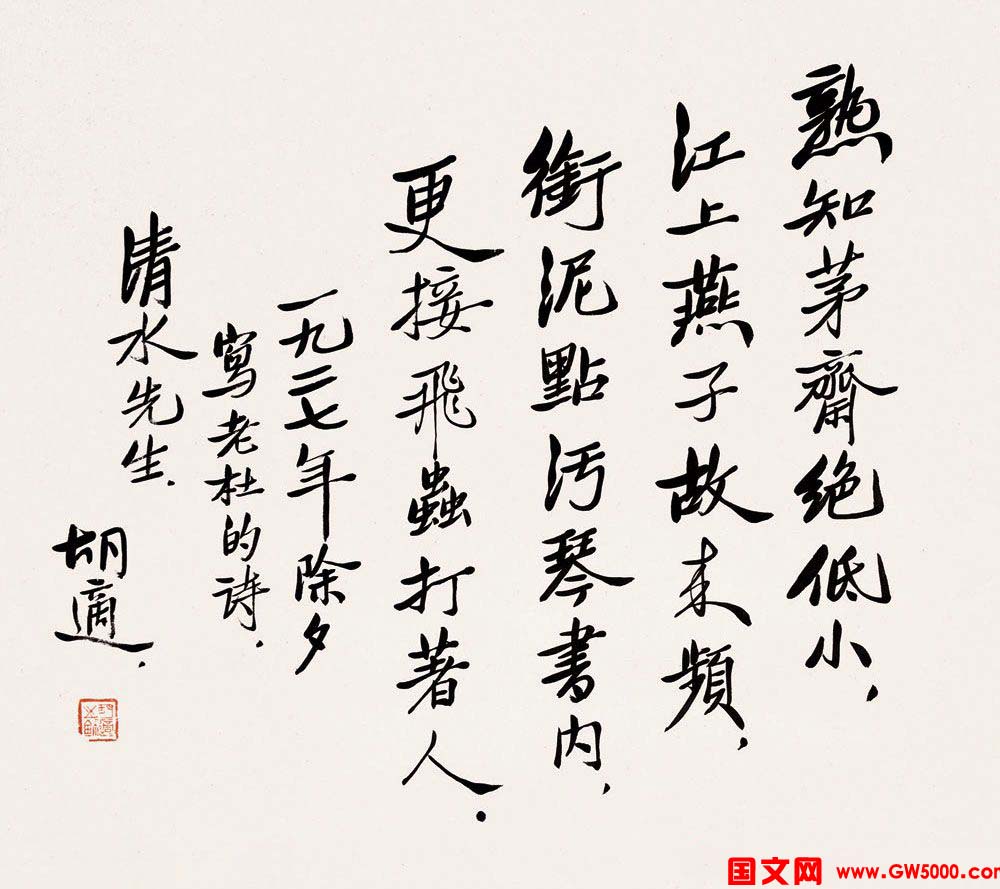 熟知茅齋绝低小，
江上燕子故来頻，
銜泥點污琴書内，
更接飛蟲打著人．
一九二七年除夕
寫老杜的诗，
清水先生．
胡適，
国文网 www.GW5000.com